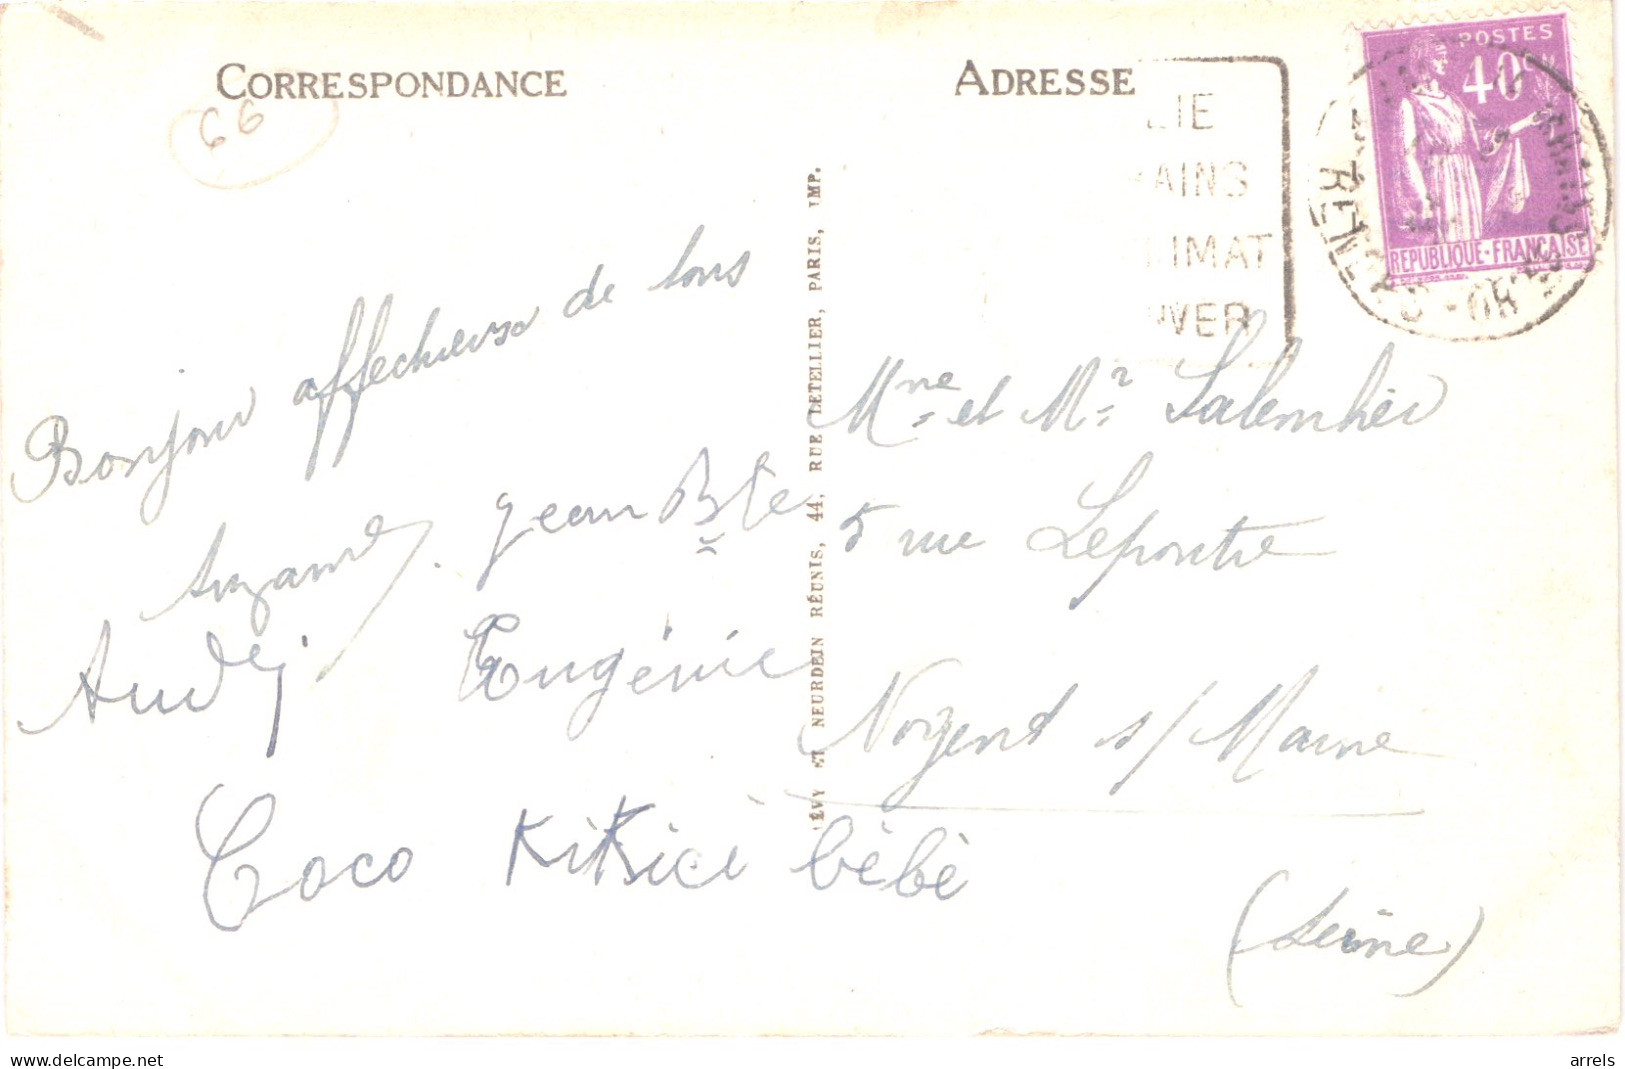 CORRESPONDANCE
66
Bonjour affectueux de tous
Suzanne. Jean Bte
Audej Eugénie
Coco KiKici bébé
LÉVY ET NEURDEIN RÉUNIS, 44, RUE LETELLIER, PARIS, IMP.
ADRESSE
LIE
BAINS
CLIMAT
HIVER
POSTES
40c
REPUBLIQUE-FRANÇAISE
Mme et Mr Salembier
5 rue Lepoutre
Nogent s/ Marne
(Seine)
www.delcampe.net
arrels